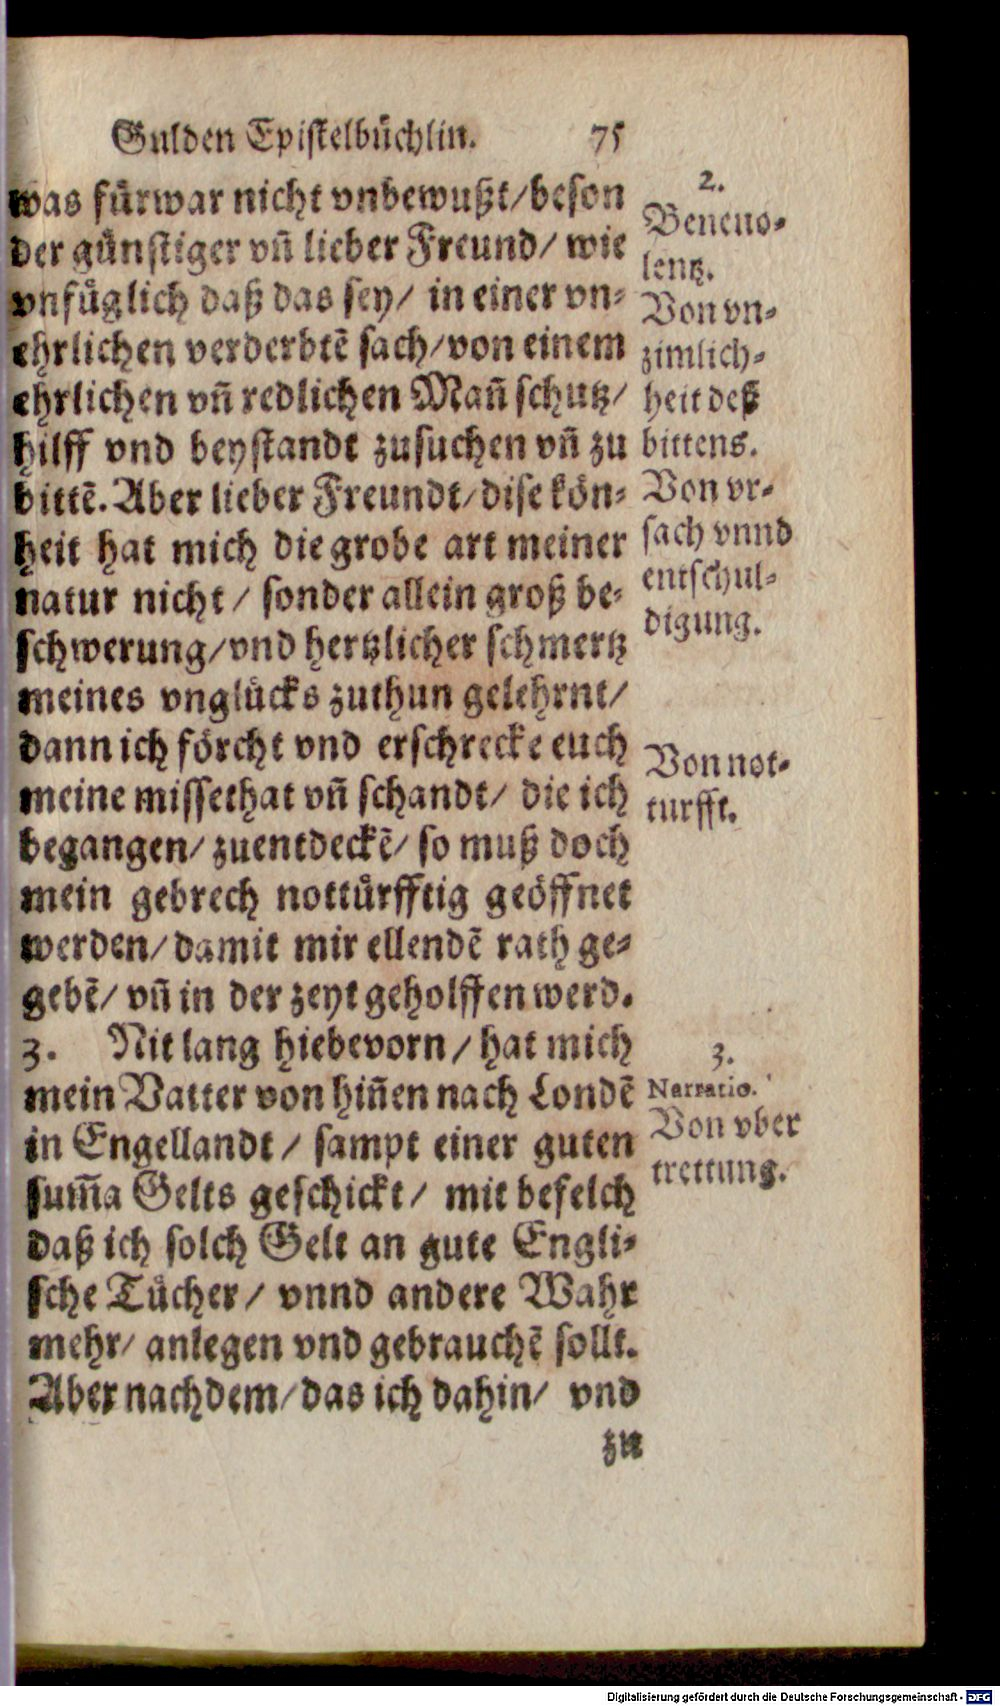 Gulden Epistelbuͤchlin. 75
was fuͤrwar nicht vnbewußt/beson
der guͤnstiger vñ lieber Freund/ wie
vnfuͤglich daß das sey/ in einer vn⸗
ehrlichen verderbtē sach/von einem
ehrlichen vñ redlichen Mañ schutz/
hilff vnd beystandt zusuchen vñ zu
bittē. Aber lieber Freundt/dise koͤn⸗
heit hat mich die grobe art meiner
natur nicht / sonder allein groß be⸗
schwerung/vnd hertzlicher schmertz
meines vngluͤcks zuthun gelehrnt/
dann ich foͤrcht vnd erschrecke euch
meine missethat vñ schandt/ die ich
begangen/ zuentdeckē/ so muß doch
mein gebrech nottuͤrfftig geoͤffnet
werden/damit mir ellendē rath ge⸗
gebē/ vñ in der zeyt geholffen werd.
3. Nit lang hiebevorn/ hat mich
mein Vatter von hiñen nach Londē
in Engellandt/ sampt einer guten
sum̃a Gelts geschickt/ mit befelch
daß ich solch Gelt an gute Engli⸗
sche Tuͤcher/ vnnd andere Wahr
mehr/ anlegen vnd gebrauchē sollt.
Aber nachdem/das ich dahin/ vnd
zu
2.
Beneuo⸗
lentz.
Von vn⸗
zimlich⸗
heit deß
bittens.
Von vr⸗
sach vnnd
entschul⸗
digung.
Von not⸗
turfft.
3.
Narratio.
Von vber
trettung.
Digitalisierung gefördert durch die Deutsche Forschungsgemeinschaft - DFG